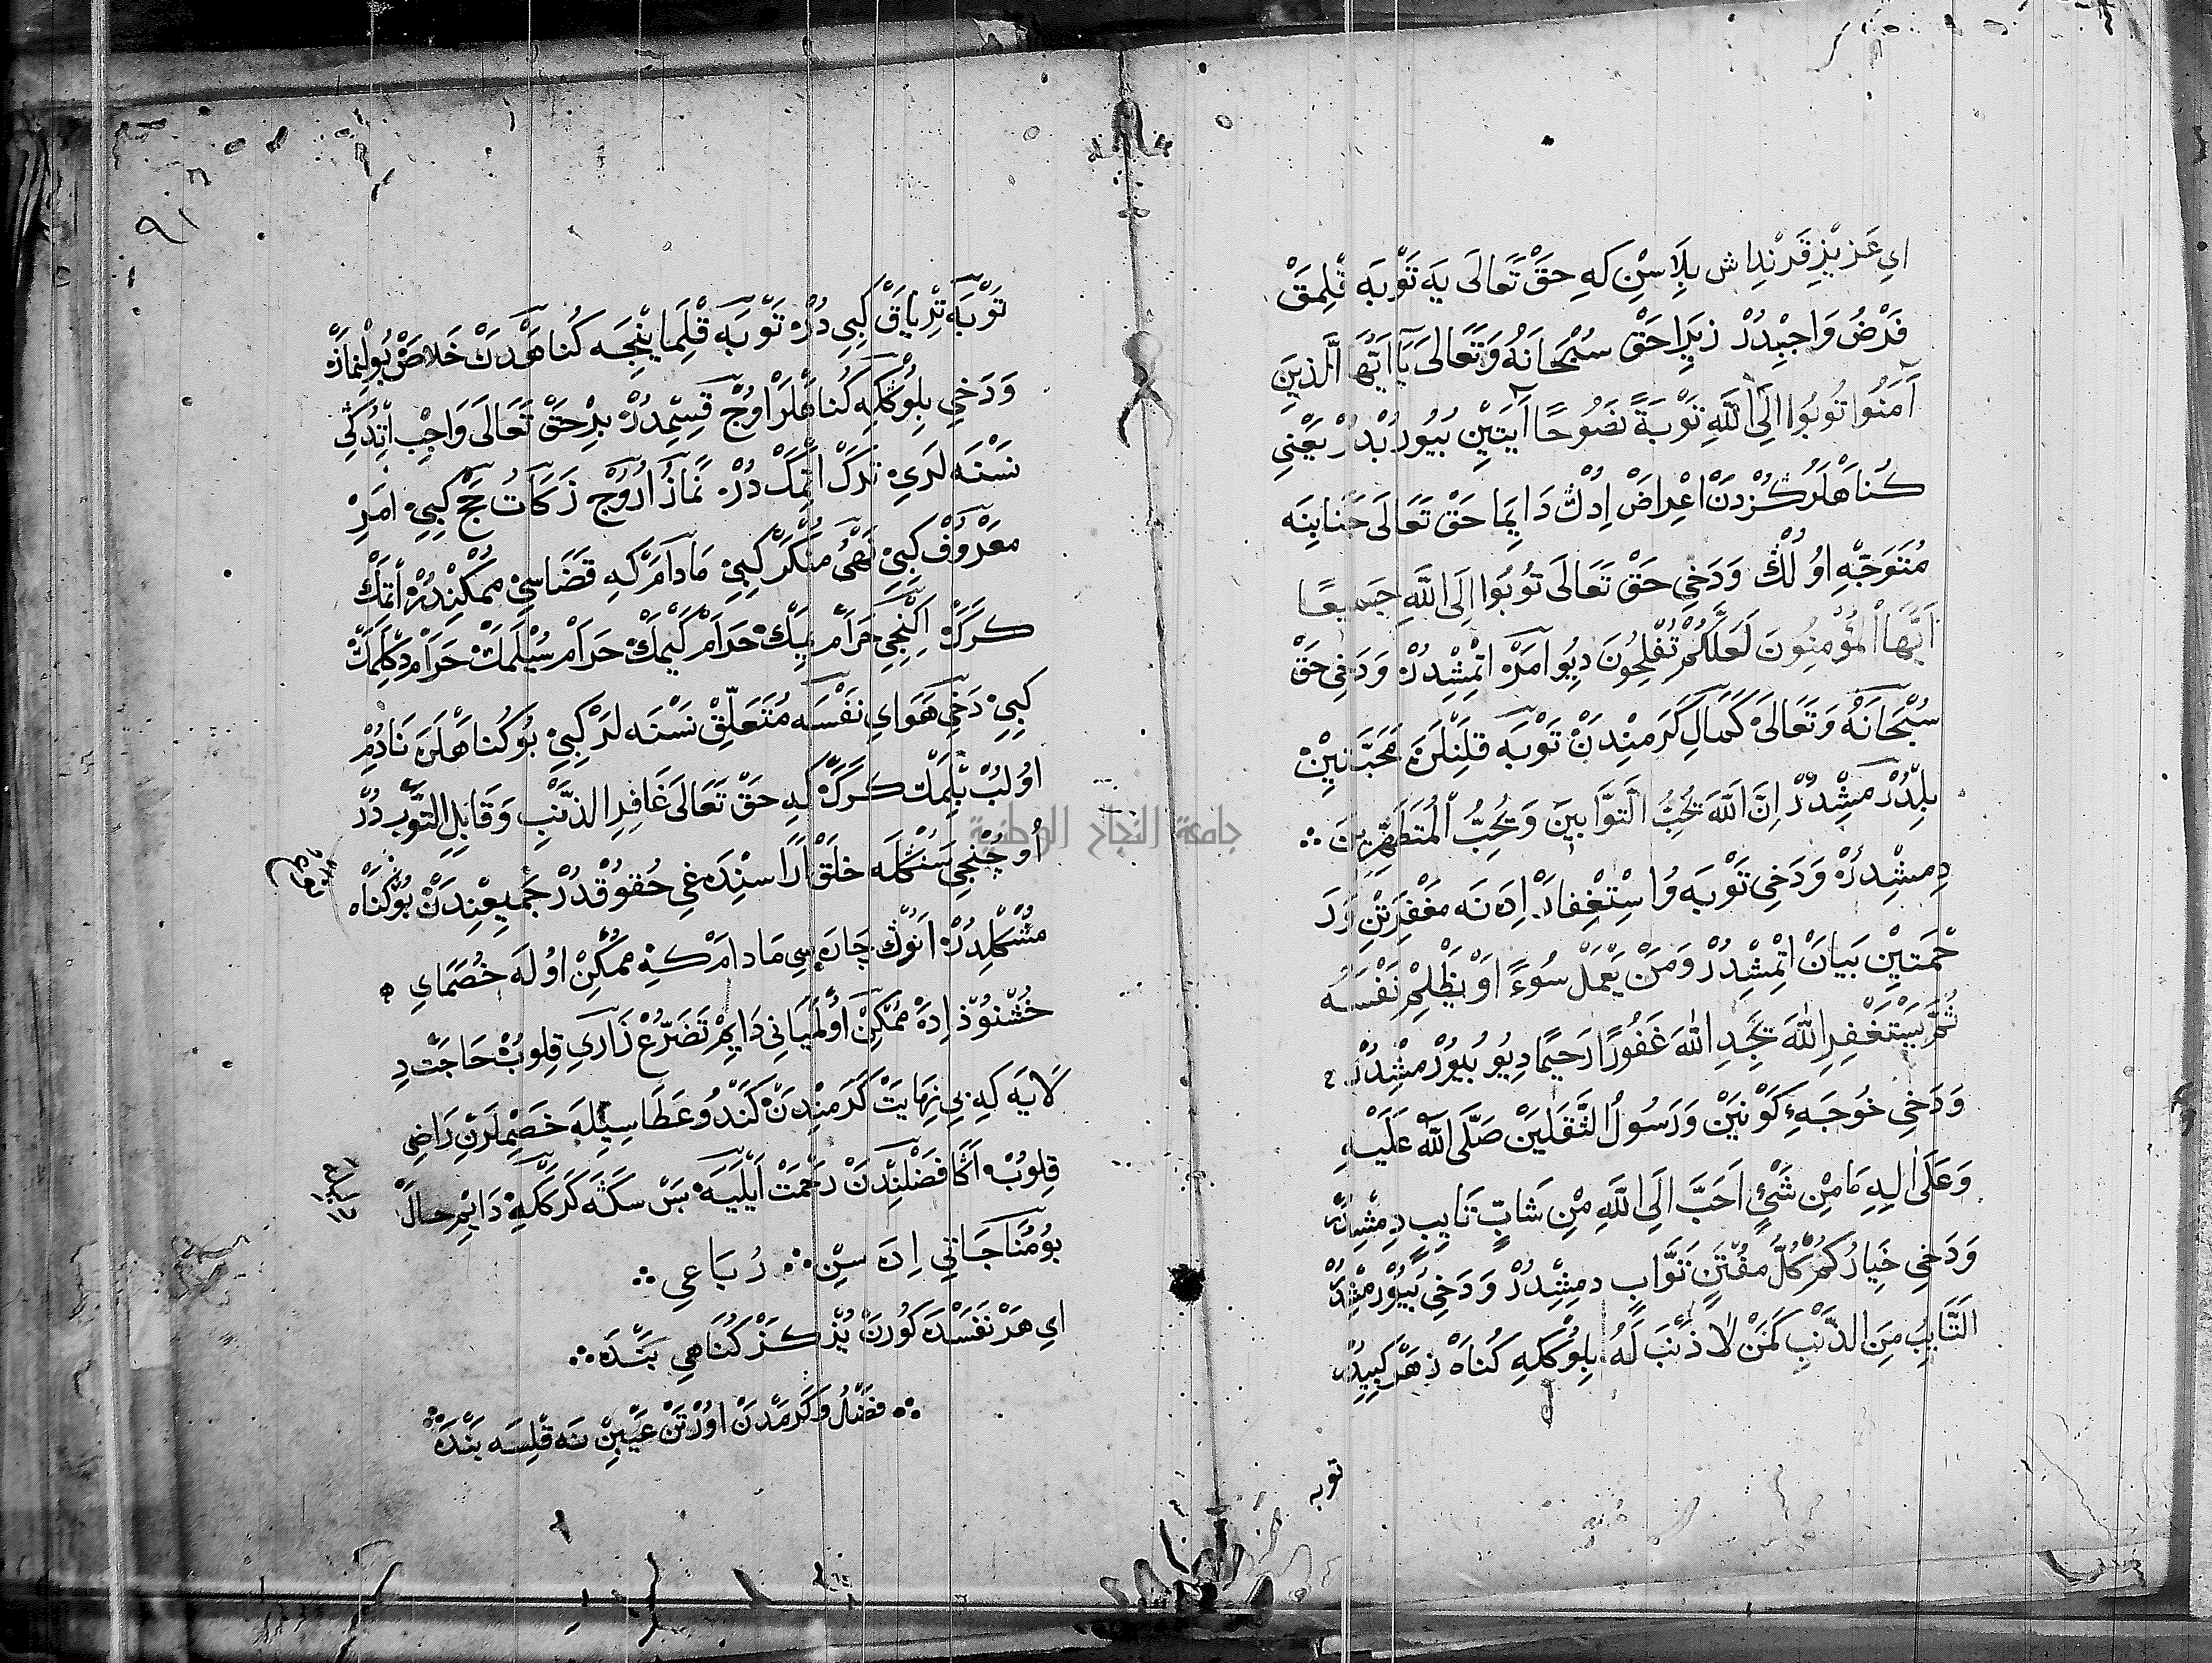 اي عَزِيْزِ قَرِنْدِاش بِلَاسِنْ كِه حَقْ تَعَالَى يَه تَوْبَه قْلِمَقْ
فَرْضُ وَاجْبِدُرْ زِيَرا حَقْ سُبْحَانَهُ وَتَعَالَى يَا اَيُّهَا الَّذِينَ
آمَنُوا تُوبُوا اِلَى اللَّهِ تَوْبَةً نَصُوحًا آيَتِيْنِ بُيُورُبْدُرْ يَعْنِي
كُنَاهْلَرُكُزْدَنْ اعْرِاضْ اِدُكْ دَايِمَا حَقْ تَعَالَى جَنَابِنَه
مُتَوَجِّهْ اوُلُكْ وَدَخِي حَقْ تَعَالَى تُوبُوا اِلَى اللَّهِ جَمِيعًا
اَيُّهَا الْمُؤْمِنُونَ لَعَلَّكُمْ تُفْلِحُونَ دِيُو اَمَرْ اتْمِشْدُرْ وَدَخِي حَقْ
سُبْحَانَهُ وَتَعَالَى كَمَالِ كَرَمِنْدَنْ تَوْبَه قِلَنْلَرَه مَحَبَّتِيْنْ
بِلْدُرْمَشِدُرْ اِنَّ اللَّهَ يُحِبُّ التَّوَّابِينَ وَيُحِبُّ الْمُتَطَهِّرِينَ ∴
دِمِشْدِرْ وَدَخِي تَوْبَه وُ اسْتِغْفِارْ اِدَنَه مَغْفِرَتْنِ وَرَ
حْمَتِيْنِ بَيَانْ اتْمِشْدُرْ وَمَنْ يَعْمَلْ سُوءً اَوْ يَظْلِمْ نَفْسَه
ثُمَّ يَسْتَغْفِرِ اللَّهَ يَجِدِ اللَّهَ غَفُورًا رَحِيمًا دِيُو بُيُوْرْمُشْدُرْ
وَدَخِي خُوجَهءِ كَوْنَيْنْ وَرَسُولُ الثَّقَلَيْنْ صَلَّى اللَّهُ عَلَيْهِ
وَعَلَى اٰلِهِ مَا مِنْ شَيْءٍ اَحَبَّ اِلَى اللَّهِ مِنْ شَابٍّ تَايِبٍ دِمِشْدُرْ
وَدَخِي خِيَارُكُمْ كُلُّ مُفْتَنٍ تَوَّابٍ دِمِشْدُرْ وَدَخِي بُيُوْرْمُشْدُرْ
اَلتَّايِبُ مِنَ الذَّنْبِ كَمَنْ لَا ذَنْبَ لَهُ بِلُوْكَكِه كُنَاهْ زَهَرْ كِبِيدُرْ
توبه
٩١
تَوْبَه تِرْيَاقْ كِبِي دُرْ تَوْبَه قْلِمَايِنْجَه كُنَاهْدَنْ خَلَاصْ بُولِنْمَازْ
وَدَخِي بِلُوْكَكِه كُنَاهْلَرْ اوُجْ قِسْمِدُرْ بِرْ حَقْ تَعَالَى وَاجِبْ اتْدُكِي
نَسْنَه لَرِي تَرْكْ اتْمَكْ دُرْ نَمَازْ اُرُوْجْ زَكَاتْ حَجْ كِبِي اَمَرِ
مَعْرُوْفْ كِبِي نَهْيُ مُنْكَرْ كِبِي مَادَامَ كِه قَضَاسِي مُمْكِنْدُرْ اتْمَكْ
كَرَكْ اِكِنْجِي حَرَامْ يِمَكْ حَرَامْ كَيْمَكْ حَرَامْ سُيْلَمَكْ حَرَامْ دِكْلَمَكْ
كِبِي دَخِي هَوَاي نَفْسَه مُتَعَلِّقْ نَسْنَه لَرْ كِبِي بُو كُنَاهْلَرَه نَادِمْ
اوُلُبْ بِلْمَكْ كَرَكْ كِه حَقْ تَعَالَى غَافِرِ الذَّنْبِ وَقَابِلِ التَّوْبِ دُرْ
اُوچُنْجِي شُنْكَلَه خَلْقْ اَرَاسِنْدَه غِي حُقُوقْدُرْ جَمِيعِنْدَنْ بُو كُنَاهْ
مُشْكِلْدُرْ اَنُوكْ چَارَه سِي مَادَامْ كِه مُمْكِنْ اوُلَه خُصَمَاي
خُشْنُوْذْ اِدَه مُمْكِنْ اوُلْمَيَانِي دَايِمْ تَضَرُّعْ زَارِي قِلُوبْ حَاجَتْ دِ
لَايَه كِه بِي نِهَايَتْ كَرَمِنْدَنْ كَنْدُو عَطَاسِيْلَه خَصِمْلَرْنِ رَاضِي
قِلُوبْ اَكَا فَضْلِنْدَنْ رَحْمَتْ اَيْلَيَه بَسْ سَكَه كَرَكْكِه دَايِمْ حَالْ
بُو مُنَاجَاتِي اِدَه سِنْ ∴ رُبَاعِي ∴
اي هَرْ نَفَسْدَه كُورَنْ يُزْ كَزْ كُنَاهِي بَنْدَه ∴
∴ فَضْلُ وَكَرَمْدَنْ اوُرْتَنْ عَيْبِنْ نَه قْلِسَه بَنْدَه ∴
جامعة النجاح الوطنية